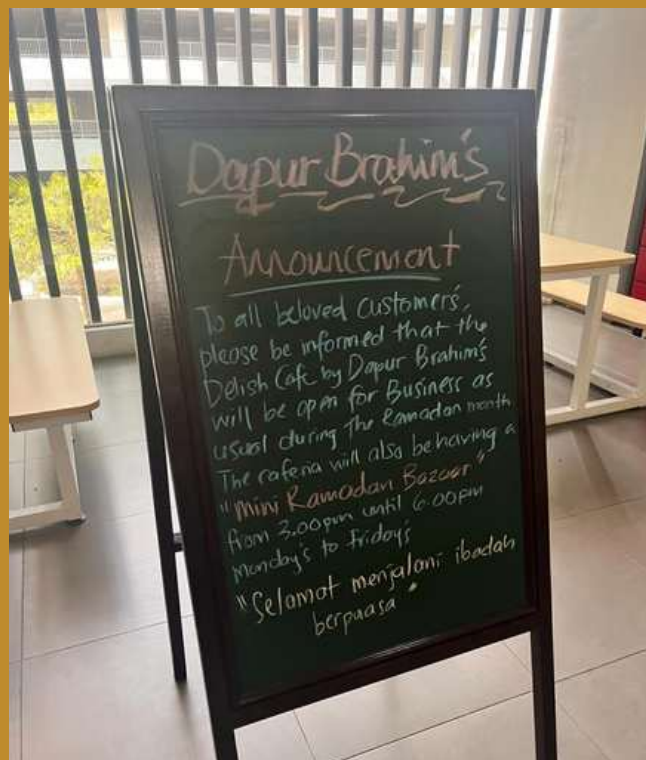 Dapur Brahim's
Announcement
To all beloved customers',
please be informed that the
Delish Cafe by Dapur Brahim's
will be open for Business as
usual during the Ramadan month
The caferia will also be having a
"Mini Ramadan Bazaar"
from 3.00pm until 6.00pm
Monday's to Friday's
"Selamat menjalani ibadah
berpuasa"